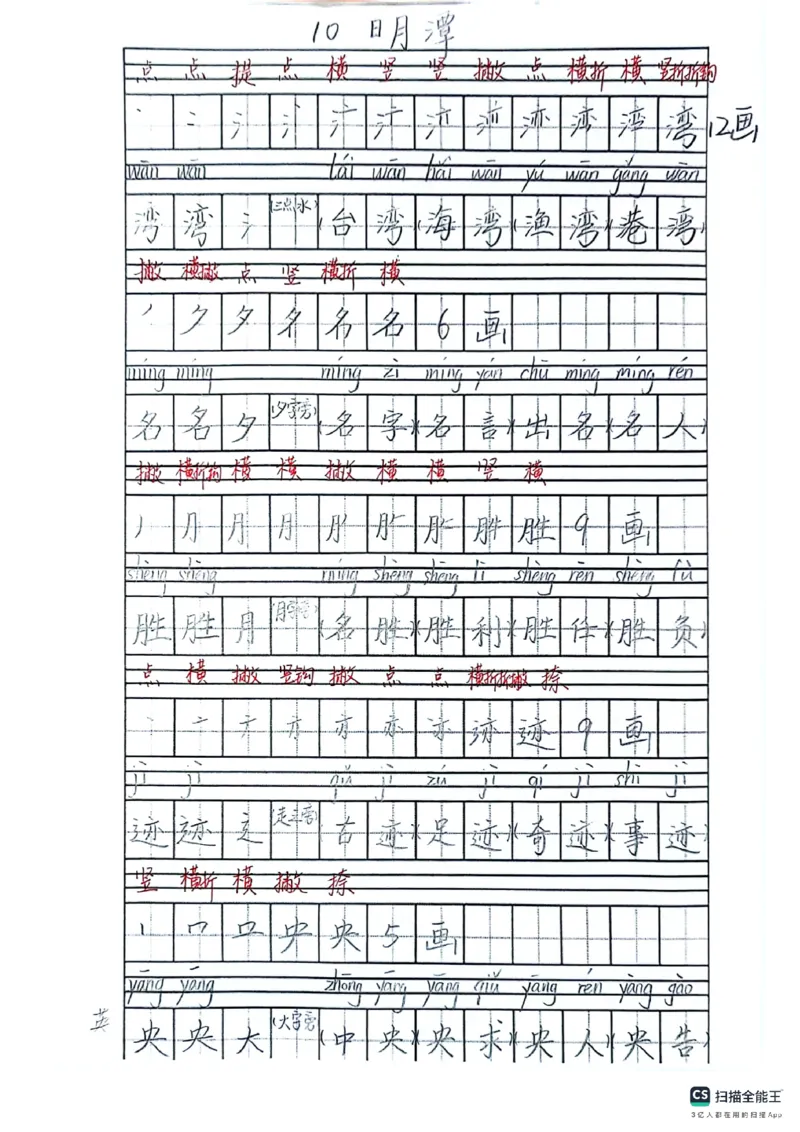 10 日月潭
点 点 提 点 横 竖 竖 撇 点 横折 横 竖折折钩
湾 12画
wān wān tái wān hǎi wān yú wān gǎng wān
湾 湾 氵 (三点水) (台 湾)(海 湾)(渔 湾)(港 湾)
撇 横撇 点 竖 横折 横
丿 夕 夕 名 名 6 画
míng míng míng zì míng yán chū míng míng rén
名 名 夕 (夕字旁) (名 字)(名 言)(出 名)(名 人)
撇 横折钩 横 横 撇 横 横 竖 横
丿 月 月 胜 9 画
shèng shèng míng shèng shèng lì shèng rèn shèng fù
胜 胜 月 (月字旁) (名 胜)(胜 利)(胜 任)(胜 负)
点 横 撇 竖钩 撇 点 点 横折折撇 捺
丶 亠 亦 迹 迹 9 画
jì jì jì zú jì qí jì shì jì
迹 迹 辶 (走之旁) (古 迹)(足 迹)(奇 迹)(事 迹)
竖 横折 横 撇 捺
丨 冂 央 央 5 画
yāng yāng zhōng yāng yāng qiú yāng rén yāng gào
英
央 央 大 (大字旁) (中 央)(央 求)(央 人)(央 告)
CS 扫描全能王
3亿人都在用的扫描App